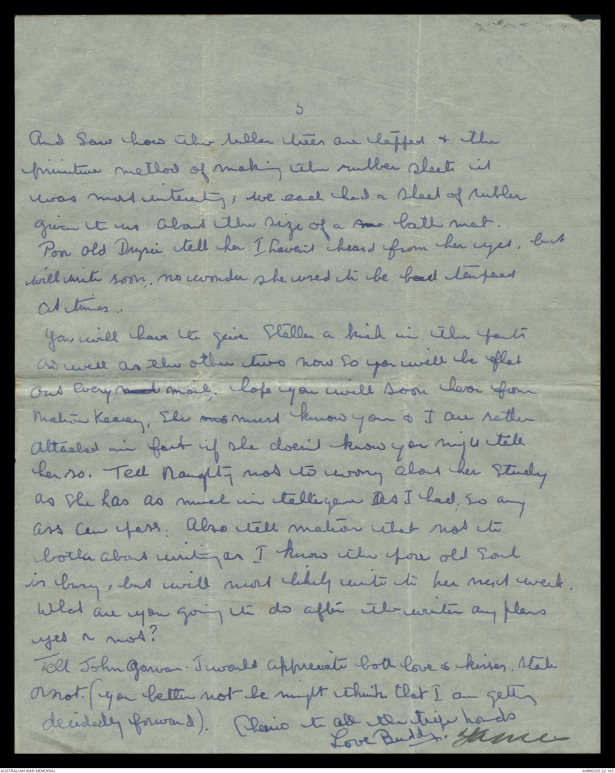 3
And saw how the rubber trees are tapped & the
primitive method of making the rubber sheets it
was most interesty, we each had a sheet of rubber
given to us about the size of a bath mat.
Poor old tell her I haven't heard from her yet, but
will write soon, no wonder she used to be bad tempered
at times..
You will have to give Stella a kick in the pants
as well as the other two now so you will be flat
out every mail. hope you will soon hear from
Matron Keasey, she must know you & I are rather
attached in fact if she doesn't know you might tell
her so. Tell Naughty not to worry about her study
as she has as much intelligence as I had, so any
ass can pass. Also tell matron that not to
bother about writing as I know the pore old soul
is busy, but will most likely write to her next week.
What are you going to do after the winter any plans
yes or not?
Tell John I would appreciate both love & kisses, stale
or not (you better not he might think that I am getting
decidedly forward). Cheerio to all the tripe hounds
Love Buddy.
AUSTRALIAN WAR MEMORIAL